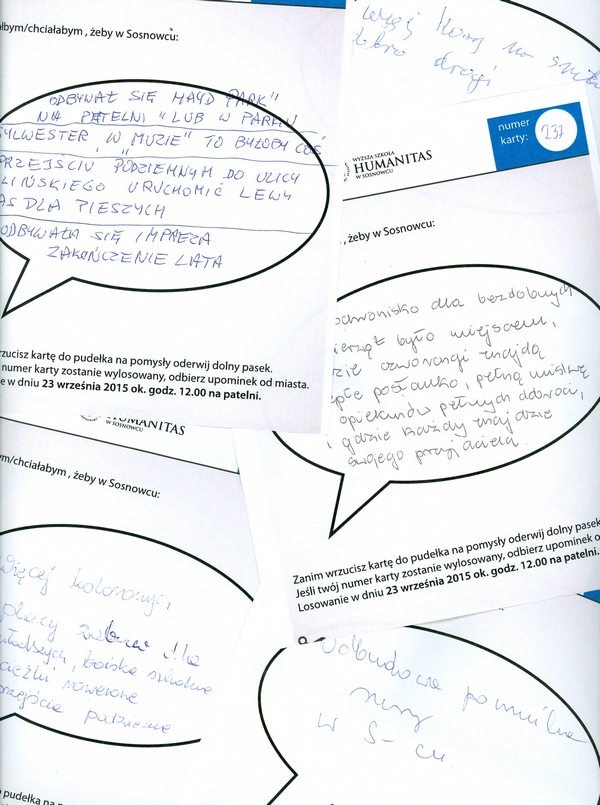 łbym/chciałabym, żeby w Sosnowcu:
ODBYWAŁ SIĘ HAYD PARK"
NA PĘTELNI "LUB W PARKU
SYLWESTER W MUZIE" TO BYŁOBY COŚ
PRZEJŚCIU PODZIEMNYM DO ULICY
LIŃSKIEGO URUCHOMIĆ LEWY
AS DLA PIESZYCH
ODBYWAŁA SIĘ IMPREZA
ZAKOŃCZENIE LATA
rzucisz kartę do pudełka na pomysły oderwij dolny pasek.
numer karty zostanie wylosowany, odbierz upominek od miasta.
e w dniu 23 września 2015 ok. godz. 12.00 na patelni.
na
dobre drogi
numer
karty:
237
WYŻSZA SZKOŁA
HUMANITAS
W SOSNOWCU
, żeby w Sosnowcu:
schronisko dla bezdomnych
zwierząt było miejscem,
gdzie czworonogi znajdą
ciepłe posłanko, pełną miskę
opiekunów pełnych dobroci,
i gdzie każdy znajdzie
swojego przyjaciela.
Zanim wrzucisz kartę do pudełka na pomysły oderwij dolny pasek
Jeśli twój numer karty zostanie wylosowany, odbierz upominek o
Losowanie w dniu 23 września 2015 ok. godz. 12.00 na patelni.
HUMANITAS
W SOSNOWCU
ym/chciałabym, żeby w Sosnowcu:
Więcej kolorowych
placy zabaw dla
młodszych, boiska szkolne
ścieżki rowerowe
przejścia podziemne
pudełka na
Odbudowa pomnika
w S-cu.